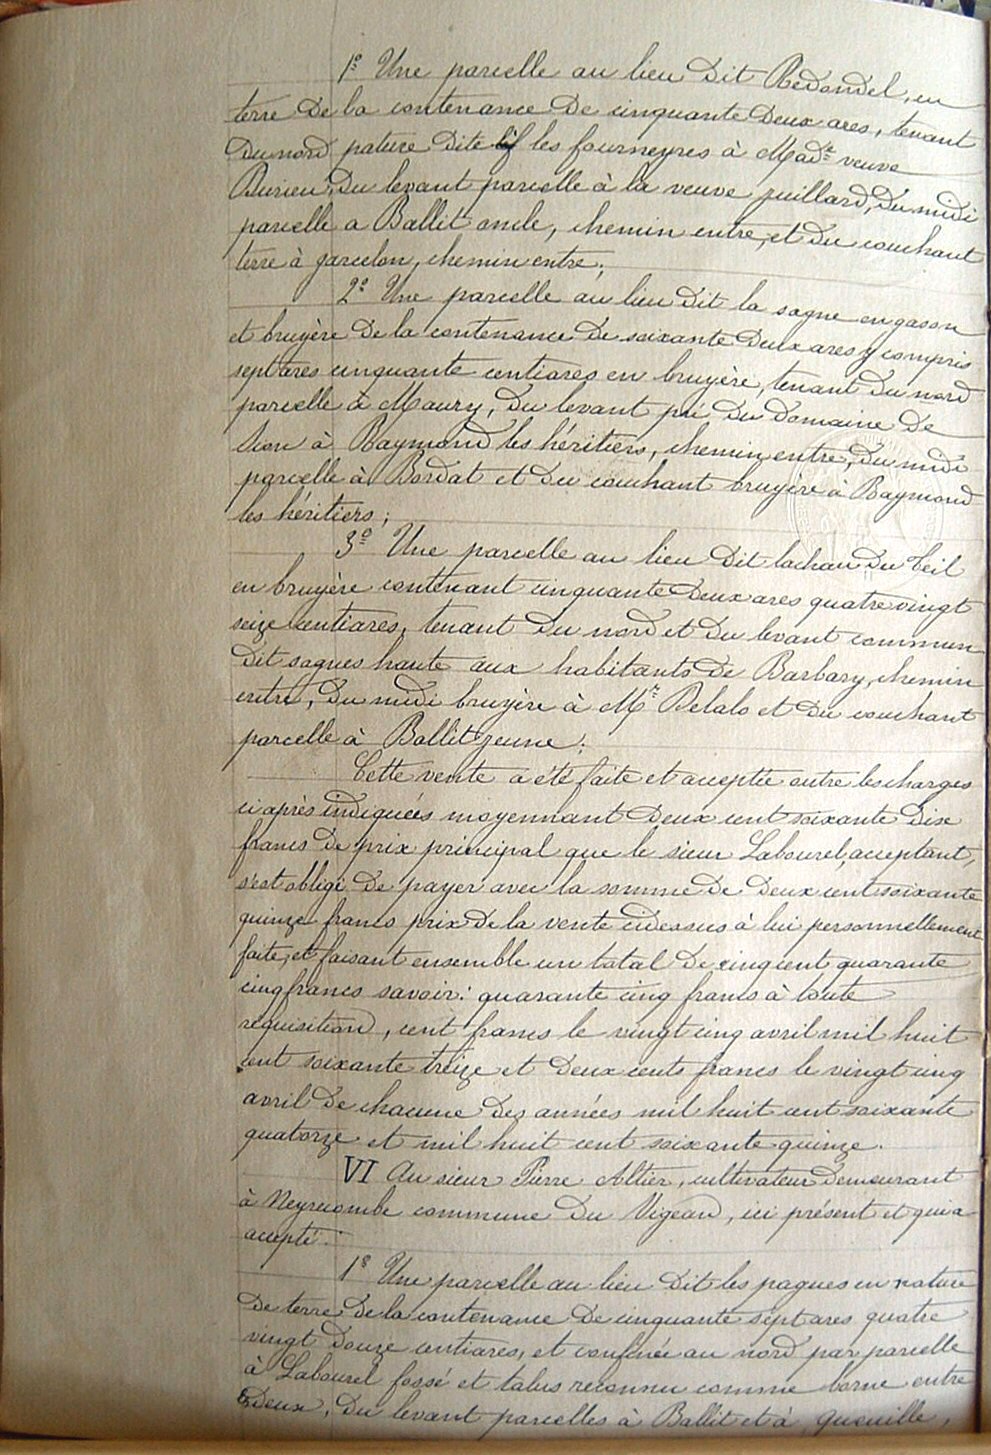 1° Une parcelle au lieu dit Redondel, en
terre de la contenance de cinquante deux ares, tenant
du nord pature dite les fourneyres à Mad.e veuve
Burieu, du levant parcelle à la veuve juillard, du midi
parcelle a Ballit oncle, chemin entre, et du couchant
terre à garcelon, chemin entre;
2° Une parcelle au lieu dit la sagne en gason
et bruyère de la contenance de soixante deux ares y compris
sept ares cinquante centiares en bruyère, tenant du nord
parcelle à Maury, du levant pré du domaine de
à Raymond les héritiers, chemin entre, du midi
parcelle à Bordat et du couchant bruyère à Raymond
les héritiers;
3° Une parcelle au lieu dit lachau du Teil
en bruyère contenant cinquante deux ares quatre vingt
seize centiares, tenant du nord et du levant commun
dit sagnes haute aux habitants de Barbary, chemin
entre, du midi bruyère à Mr Delalo et du couchant
parcelle à Ballit jeune;
Cette vente a été faite et acceptée outre les charges
ci après indiquées moyennant deux cent soixante dix
francs de prix principal que le sieur Labourel, acceptant,
s'est obligé de payer avec la somme de deux cent soixante
quinze francs prix de la vente cidessus à lui personnellement
faite, et faisant ensemble un total de cinq cent quarante
cinq francs savoir: quarante cinq francs à toute
réquisition, cent francs le vingt cinq avril mil huit
cent soixante treize et deux cents francs le vingt cinq
avril de chacune des années mil huit cent soixante
quatorze et mil huit cent soixante quinze.
VI Au sieur Pierre Altier, cultivateur demeurant
à Neyrcombe commune du Vigean, ici présent et qui a
accepté:
1° Une parcelle au lieu dit les pagues en nature
de terre de la contenance de cinquante sept ares quatre
vingt douze centiares, et confinée au nord par parcelle
à Labourel fossé et talus reconnu comme borne entre
deux, du levant parcelles à Ballit et à queuille,